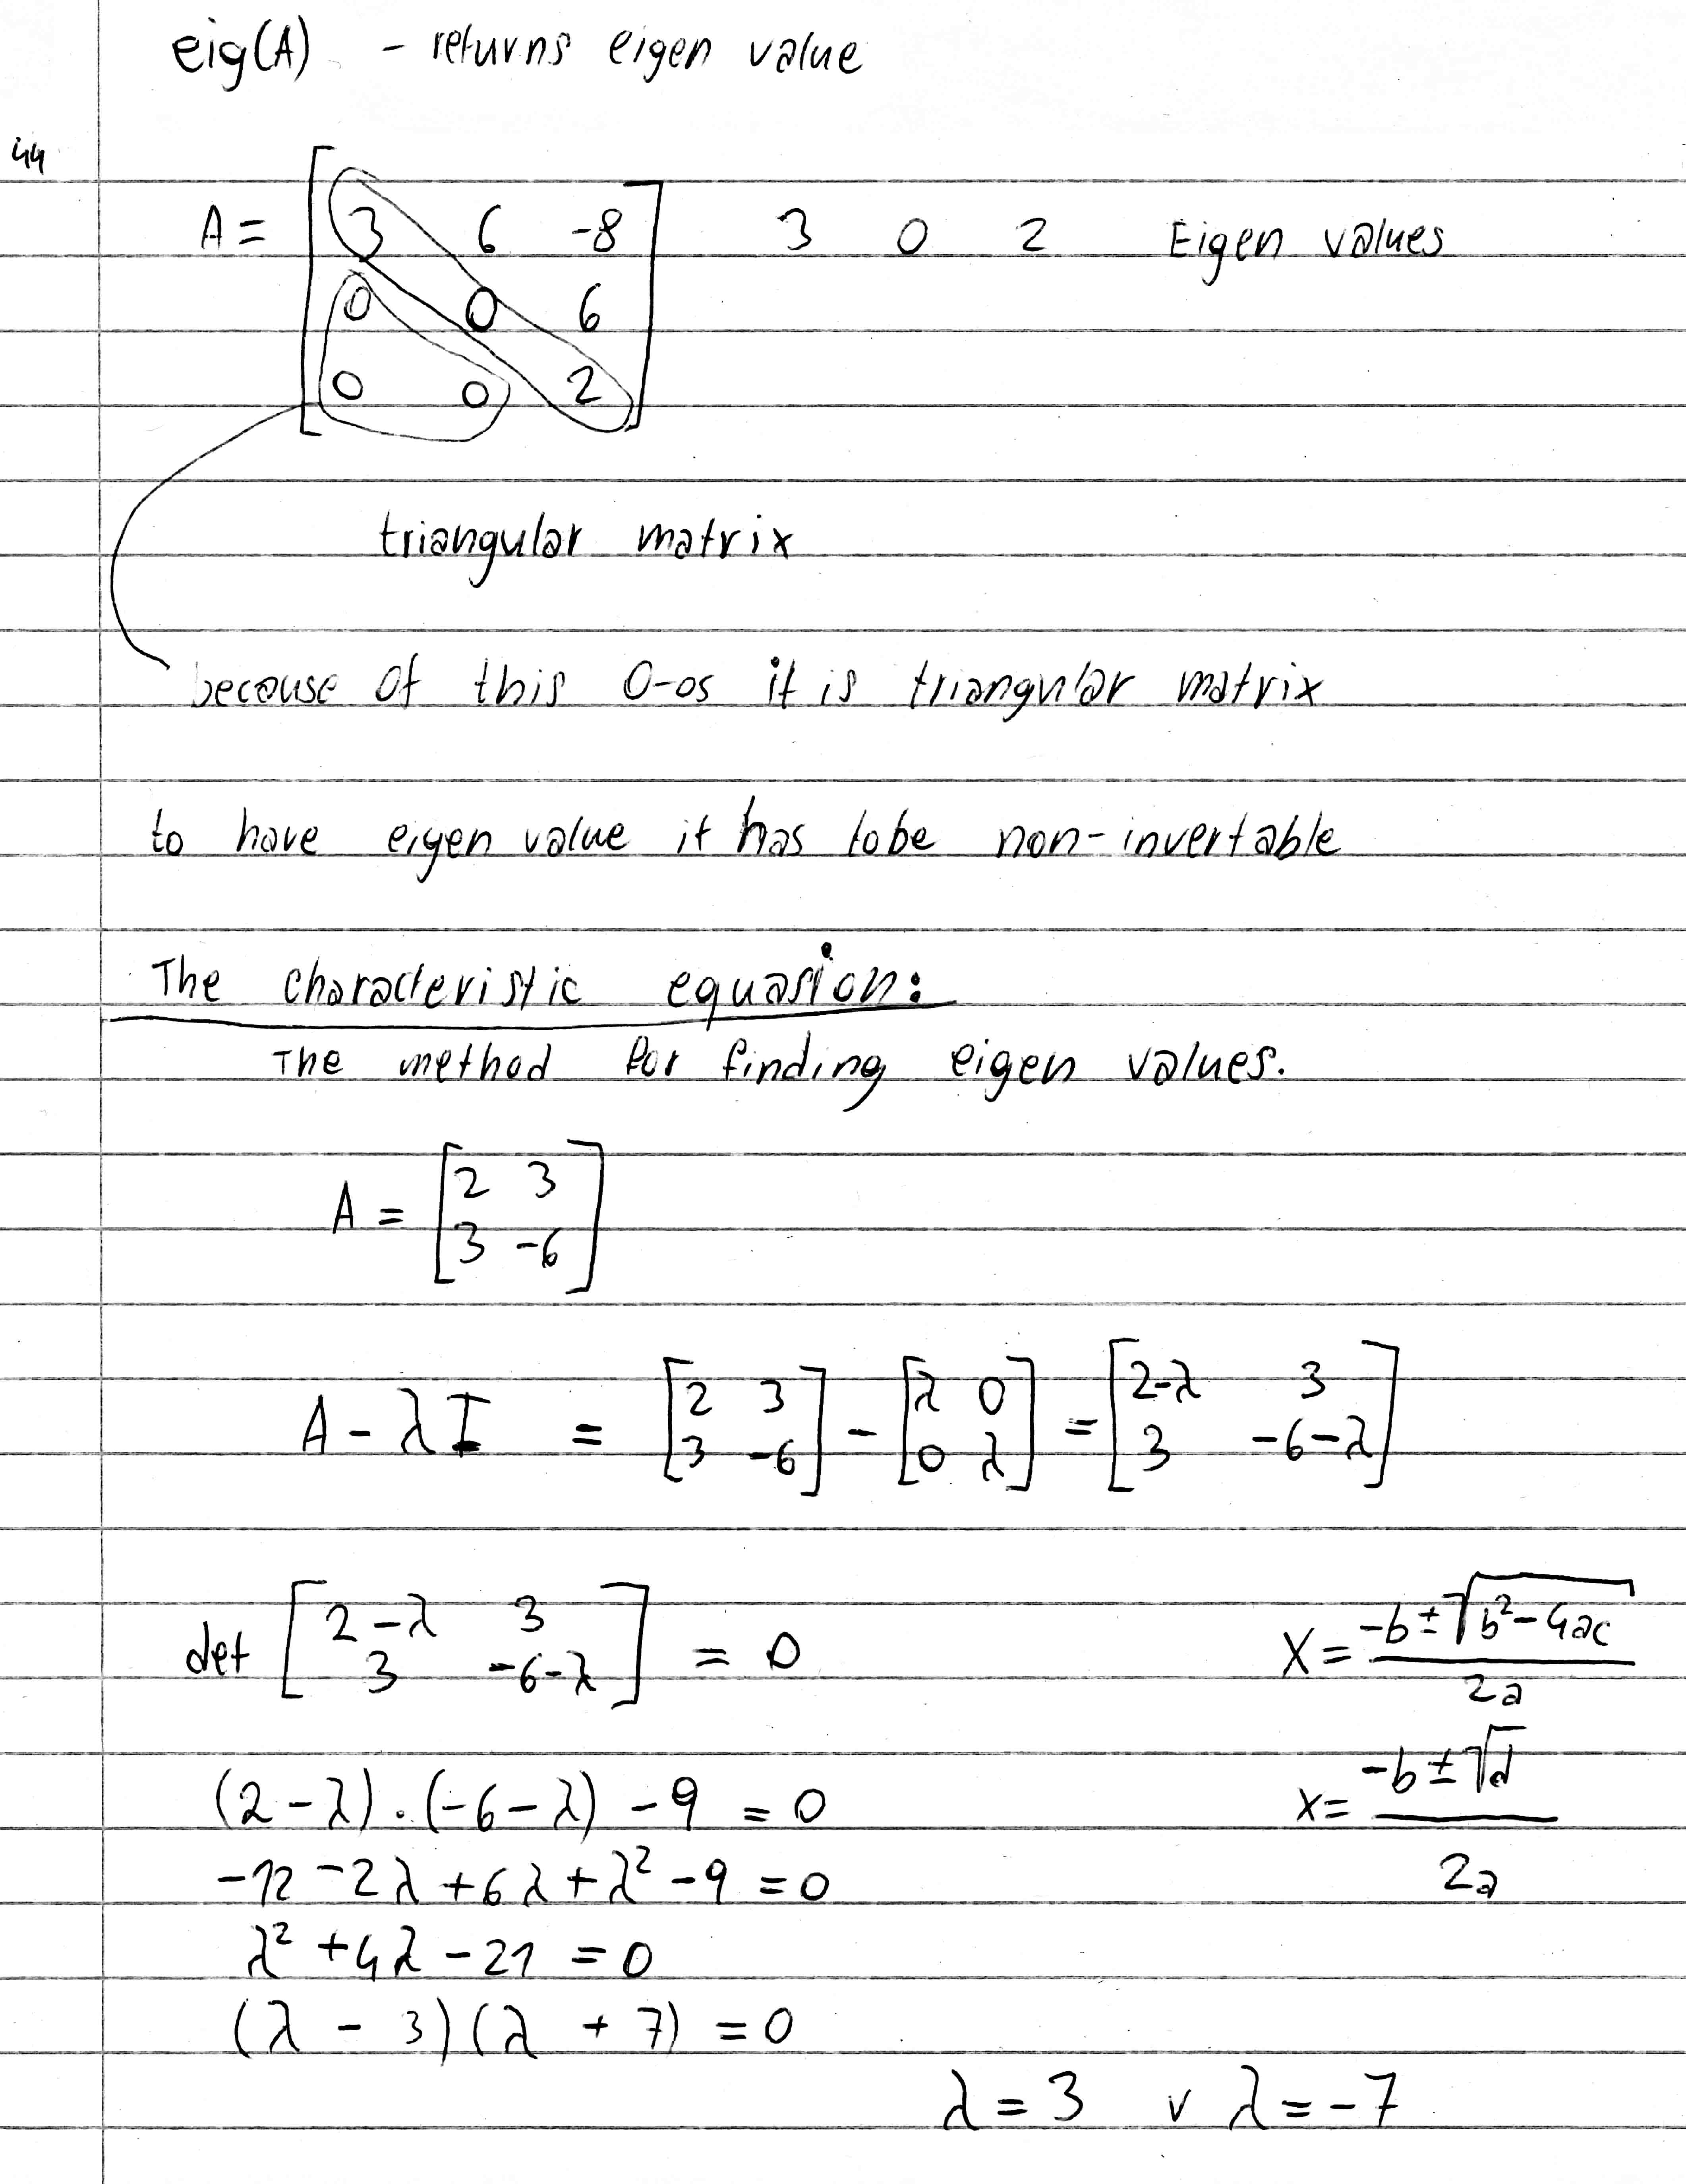 eig(A) - returns eigen value
44
A = [ 3 6 -8 ] 3 0 2 Eigen values
0 0 6
0 0 2
triangular matrix
because of this 0-os it is triangular matrix
to have eigen value it has to be non-invertable
The characteristic equasion:
The method for finding eigen values.
A = [ 2 3
3 -6 ]
A - λ I = [ 2 3 ] - [ λ 0 ] = [ 2-λ 3 ]
[ 3 -6 ] [ 0 λ ] [ 3 -6-λ ]
det [ 2-λ 3
3 -6-λ ] = 0
x = (-b ± √(b² - 4ac)) / 2a
x = (-b ± √d) / 2a
(2 - λ) · (-6 - λ) - 9 = 0
-12 - 2λ + 6λ + λ² - 9 = 0
λ² + 4λ - 21 = 0
(λ - 3)(λ + 7) = 0
λ = 3 v λ = -7